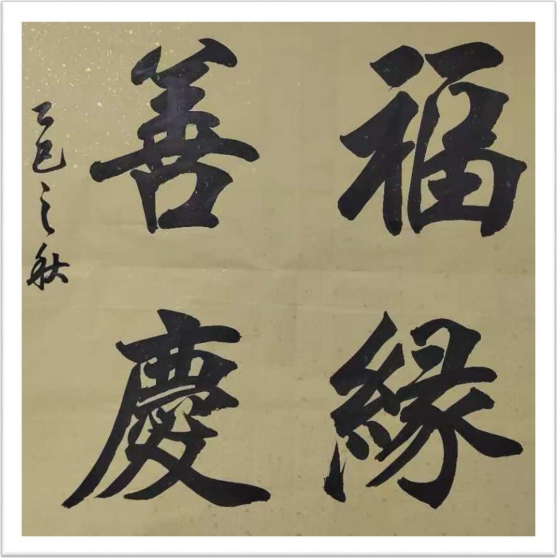 福緣
善慶
乙巳之秋